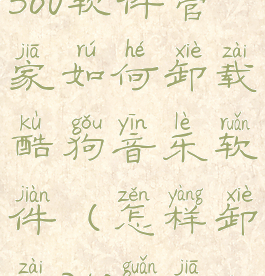 360软件管
jiā rú hé xiè zài
家如何卸载
kù gǒu yīn lè ruǎn
酷狗音乐软
jiàn zěn yàng xiè
件（怎样卸
zài guǎn jiā